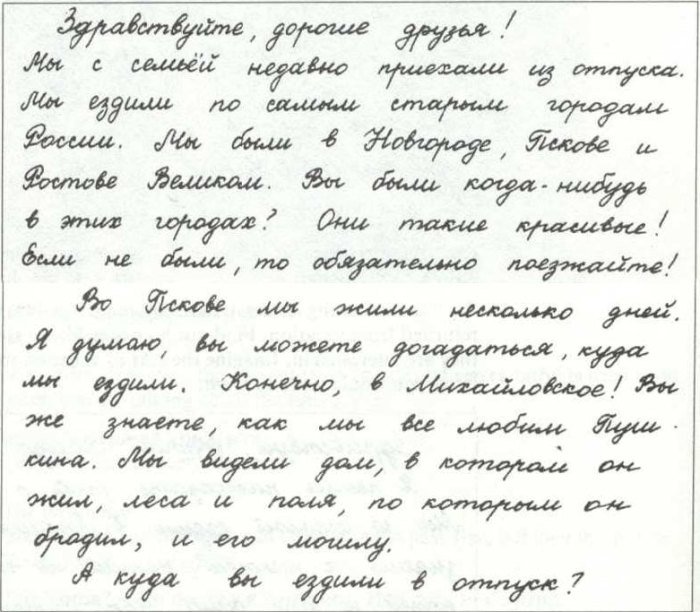 Здравствуйте, дорогие друзья!
Мы с семьёй недавно приехали из отпуска.
Мы ездили по самым старым городам
России. Мы были в Новгороде, Пскове и
Ростове Великом. Вы были когда-нибудь
в этих городах? Они такие красивые!
Если не были, то обязательно поезжайте!
Во Пскове мы жили несколько дней.
Я думаю, вы можете догадаться, куда
мы ездили. Конечно, в Михайловское! Вы
же знаете, как мы все любим Пуш-
кина. Мы видели дом, в котором он
жил, леса и поля, по которым он
бродил, и его могилу.
А куда вы ездили в отпуск?